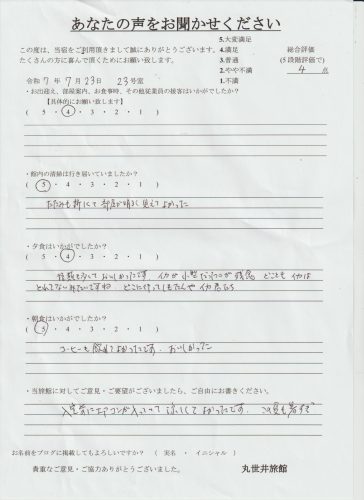 あなたの声をお聞かせください
この度は、当宿をご利用頂きまして誠にありがとうございます。
たくさんの方に喜んで頂くためにお願い致します。
5.大変満足
4.満足
3.普通
2.やや不満
1.不満
総合評価
(5段階評価で)
4 点
令和7年7月23日 23号室
・お出迎え、部屋案内、お食事時、その他従業員の接客はいかがでしたか?
【具体的にお願い致します】
( 5 ・ 4 ・ 3 ・ 2 ・ 1 )
・館内の清掃は行き届いていましたか?
( 5 ・ 4 ・ 3 ・ 2 ・ 1 )
たたみも新にて部屋が明るく見えてよかった
・夕食はいかがでしたか?
( 5 ・ 4 ・ 3 ・ 2 ・ 1 )
おいしかったです イカが小型だったのが残念 どこもイカは
とれてないみたいですね どこに行ってしもたんや イカ君たち
・朝食はいかがでしたか?
( 5 ・ 4 ・ 3 ・ 2 ・ 1 )
コーヒーも飲めてよかったです。おいしかった
・当旅館に対してご意見・ご要望がございましたら、ご自由にお書きください。
入室前にエアコンが入っていて涼しくてよかったです。この夏も暑すぎ
お名前をブログに掲載してもよろしいですか? ( 実名 ・ イニシャル )
貴重なご意見・ご協力ありがとうございました。
丸世井旅館